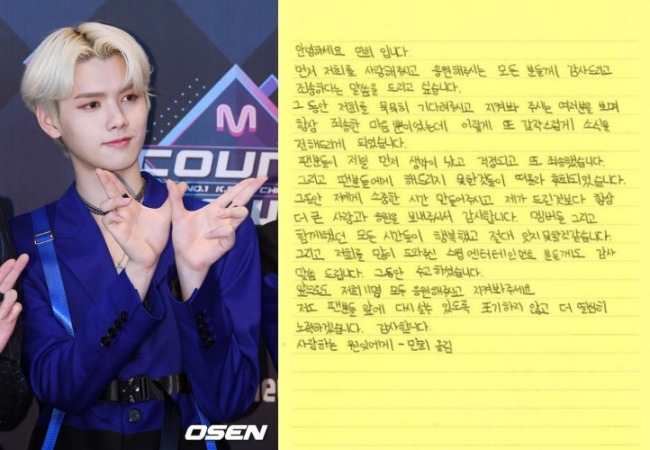 M
COUN
NO.1 K
OSEN
안녕하세요 민희 입니다.
먼저 저희를 사랑해주시고 응원해주시는 모든 분들께 감사드리고
죄송하다는 말씀을 드리고 싶습니다.
그동안 저희를 묵묵히 기다려주시고 지켜봐 주시는 여러분을 보며
항상 죄송한 마음 뿐이었는데 이렇게 또 갑작스럽게 소식을
전해드리게 되었습니다.
팬분들이 제일 먼저 생각이 났고 걱정되고 또 죄송했습니다.
그리고 팬분들에게 해드리지 못한것들이 떠올라 후회되었습니다.
그동안 저에게 소중한 시간 만들어주시고 제가 드린것보다 항상
더 큰 사랑과 응원을 보내주셔서 감사합니다. 멤버들 그리고
함께했던 모든 시간들이 행복했고 절대 잊지못할것같습니다.
그리고 저희를 많이 도와주신 스윙엔터테인먼트 분들께도 감사
말씀 드립니다. 그동안 수고하셨습니다.
앞으로도 저희11명 모두 응원해주시고 지켜봐주세요
저도 팬분들 앞에 다시 설수 있도록 포기하지 않고 더 열심히
노력하겠습니다. 감사합니다.
사랑하는 원잇에게 - 민희 올림